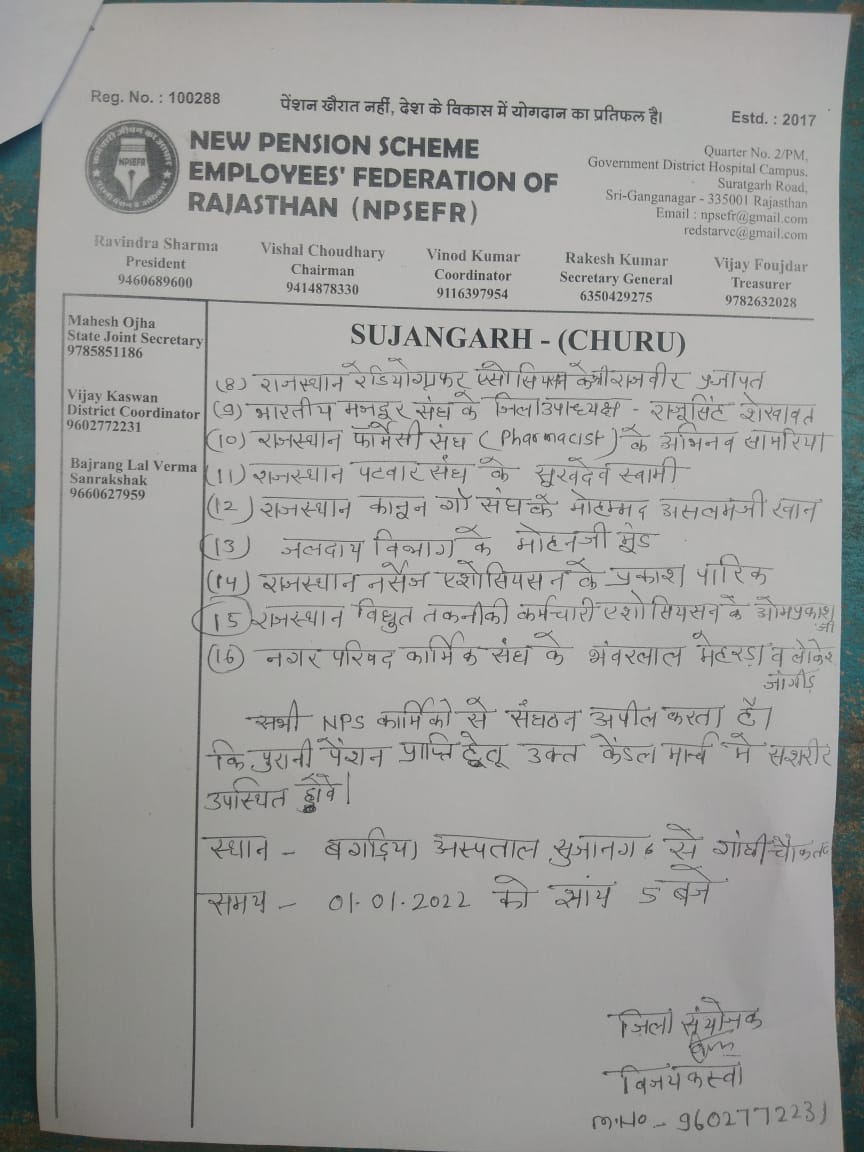 Reg. No. : 100288
पेंशन खैरात नहीं, देश के विकास में योगदान का प्रतिफल है।
Estd. : 2017
NPSEFR
NEW PENSION SCHEME
EMPLOYEES' FEDERATION OF
RAJASTHAN (NPSEFR)
Quarter No. 2/PM,
Government District Hospital Campus.
Suratgarh Road,
Sri-Ganganagar - 335001 Rajasthan
Email : npsefr@gmail.com
redstarvc@gmail.com
Ravindra Sharma
President
9460689600
Vishal Choudhary
Chairman
9414878330
Vinod Kumar
Coordinator
9116397954
Rakesh Kumar
Secretary General
6350429275
Vijay Foujdar
Treasurer
9782632028
Mahesh Ojha
State Joint Secretary
9785851186
Vijay Kaswan
District Coordinator
9602772231
Bajrang Lal Verma
Sanrakshak
9660627959
SUJANGARH - (CHURU)
(8) राजस्थान रेडियोग्राफर एसोसियसन के श्री राजवीर प्रजापत
(9) भारतीय मजदूर संघ के जिला उपाध्यक्ष - राजूसिंट शेखावत
(10) राजस्थान फॉर्मेसी संघ (Pharmacist) के अभिनव सामरिया
(11) राजस्थान पटवार संघ के सूखदेव स्वामी
(12) राजस्थान कानून गो संघ के मोहम्मद असलमजी खान
(13) जलदाय विभाग के मोहनजी मूंड
(14) राजस्थान नर्सेज एशोसियसन के प्रकाश पारिक
(15) राजस्थान विधुत तकनीकी कर्मचारी एशोसियसन के ओमप्रकाश
जी
(16) नगर परिषद कार्मिक संघ के भंवरलाल मेहरड़ा व लोकेश
जांगीड़
सभी NPS कार्मिको से संघठन अपील करता है।
कि पुरानी पेंशन प्राप्ति हेतू उक्त कैंडल मार्च मे सशरीर
उपस्थित होवे।
स्थान - बगड़िया अस्पताल सुजानगढ़ से गांधी चौक तक
समय - 01.01.2022 को सांय 5 बजे
जिला संयोजक
विजय कस्वां
M.No - 9602772231